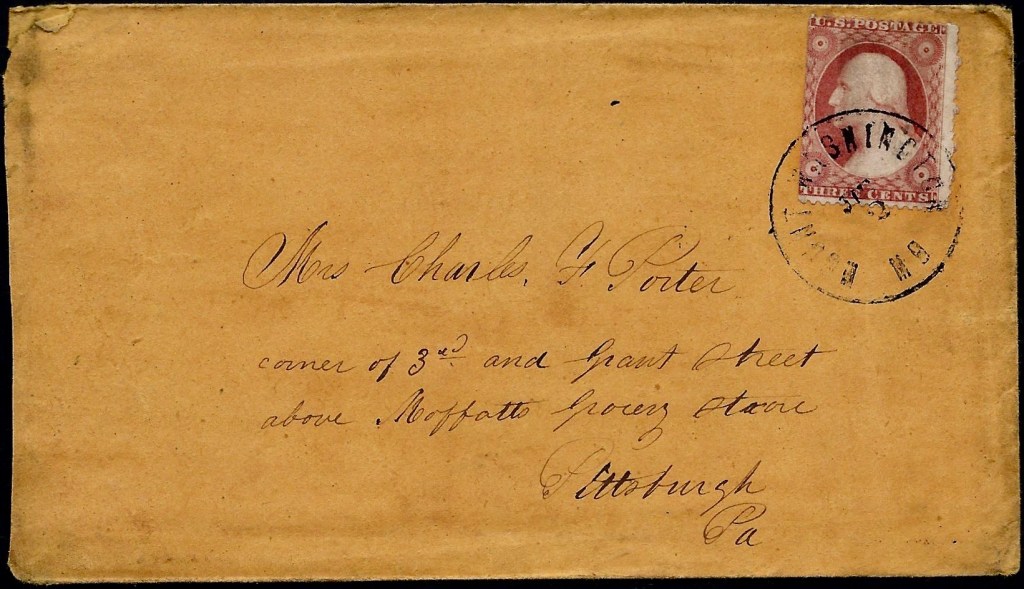 U.S. POSTAGE
THREE CENTS
MOUNT WASHINGTON
Mrs Charles. F Porter
corner of 3rd and Grant Street
above Moffatts Grocery Stoore
Pittsburgh
Pa